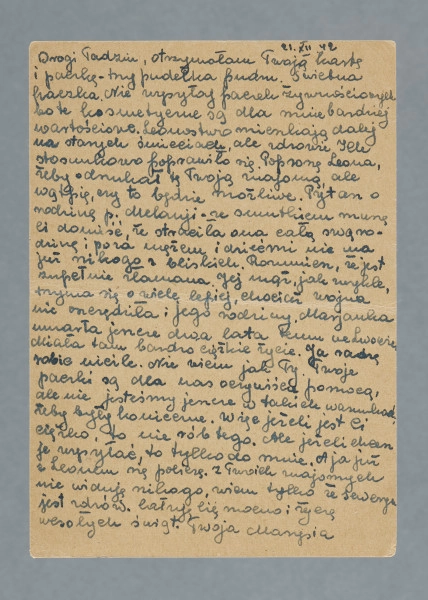 21. XII 42
Drogi Tadziu, otrzymałam Twoją kartę
i paczkę - trzy pudełka pudru. Świetna
paczka. Nie wysyłaj paczek żywnościowych
bo te kosmetyczne są dla mnie bardziej
wartościowe. Leonostwo mieszkają dalej
na starych śmieciach, ale zdrowie Jeli
stosunkowo poprawiło się. Poproszę Leona,
żeby odszukał tę Twoją znajomą ale
wątpię, czy to będzie możliwe. Pytasz o
rodzinę p. Melanji - ze smutkiem muszę
Ci donieść, że straciła ona całą swą ro-
dzinę i poza mężem i dziećmi nie ma
już nikogo z bliskich. Rozumiem, że jest
zupełnie złamana. Jej mąż, jak zwykle,
trzyma się o wiele lepiej, chociaż wojna
nie oszczędziła i jego rodziny. Maryanka
umarła jeszcze dwa lata temu we Lwowie,
miała tam bardzo ciężkie życie. Ja radzę
sobie nieźle. Nie wiem jak Ty. Twoje
paczki są dla nas oczywiście pomocą,
ale nie jesteśmy jeszcze w takich warunkach,
żeby były konieczne. Więc jeżeli jest Ci
ciężko, to nie rób tego. Ale jeżeli chcesz
je wysyłać, to tylko do mnie. A ja już
z Leonem się podzielę. Z Twoich znajomych
nie widuję nikogo, wiem tylko że Seweryn
jest zdrów. Całuję Cię mocno i życzę
wesołych świąt. Twoja Marysia